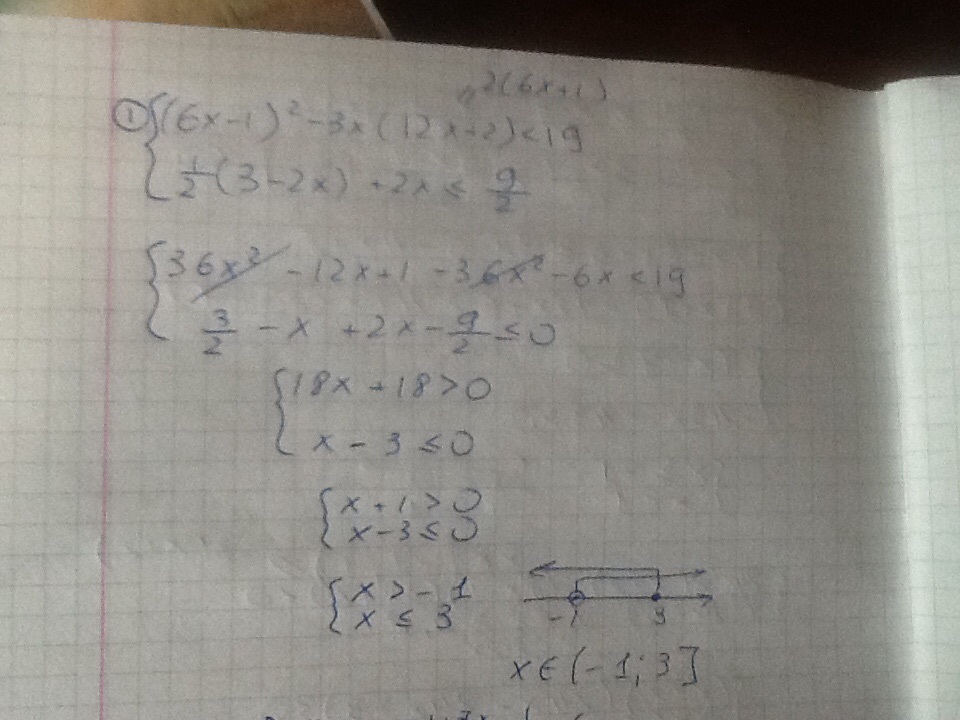 2(6x+1)
① { (6x-1)² - 3x(12x+2) < 19
{ 1/2 (3-2x) + 2x ≤ 9/2
{ 36x² - 12x + 1 - 36x² - 6x < 19
{ 3/2 - x + 2x - 9/2 ≤ 0
{ 18x + 18 > 0
{ x - 3 ≤ 0
{ x + 1 > 0
{ x - 3 ≤ 0
{ x > - 1
{ x ≤ 3
-1 3
x ∈ (-1; 3]